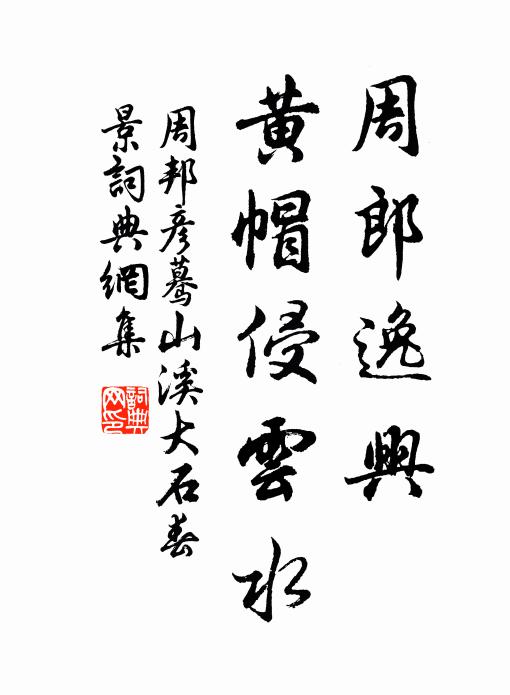 周郎逸興
黃帽侵雲水
周邦彦驀山溪大石春
景詞典網集
詞典
网印